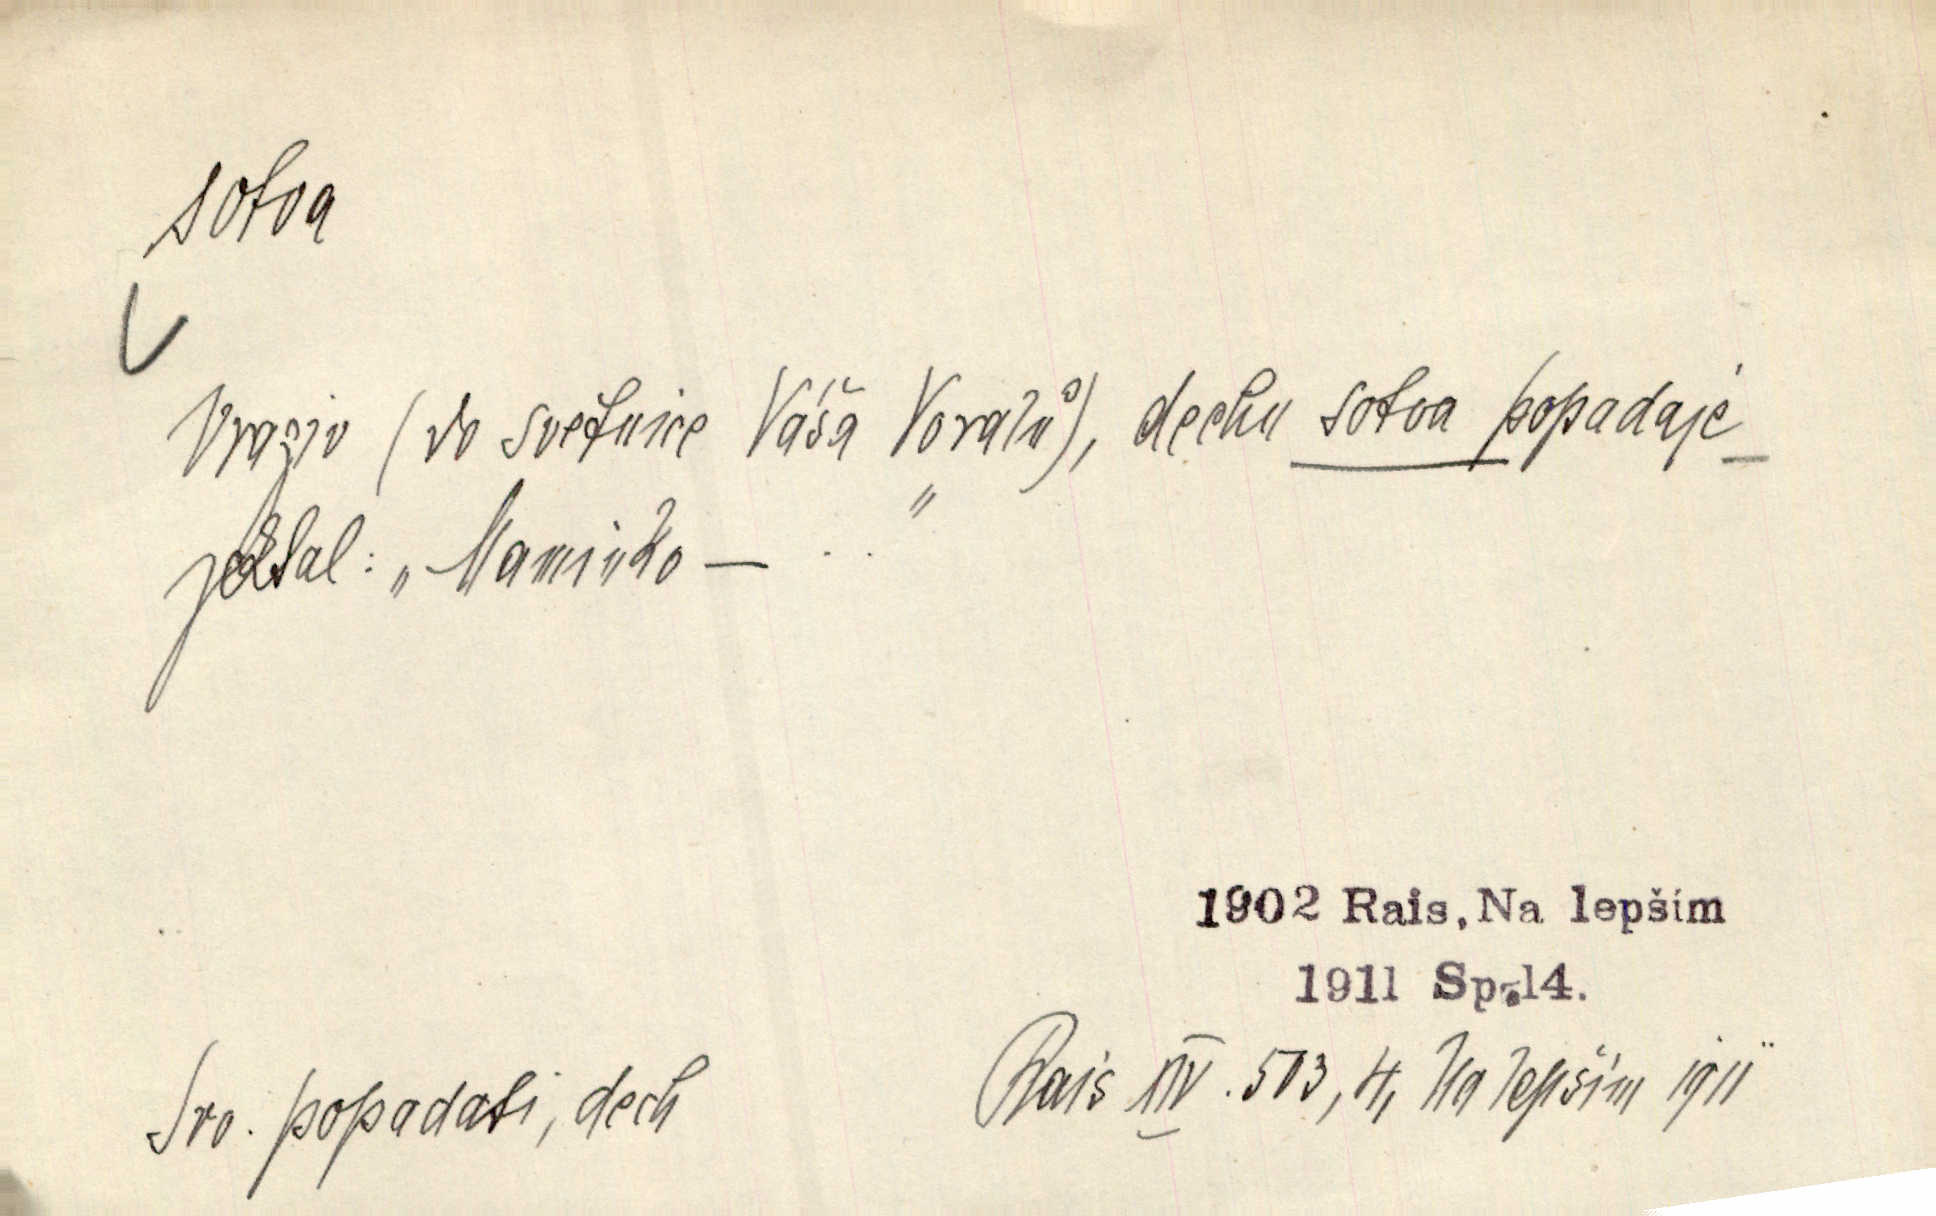 sotva
Vraziv (do světnice Váša Voralů), dechu sotva popadaje
ječtal: „Maminko — . . "
1902 Rais, Na lepším
1911 Sp.14.
Srv. popadati, dech
Rais XIV. 503, 4, Na lepším 1911